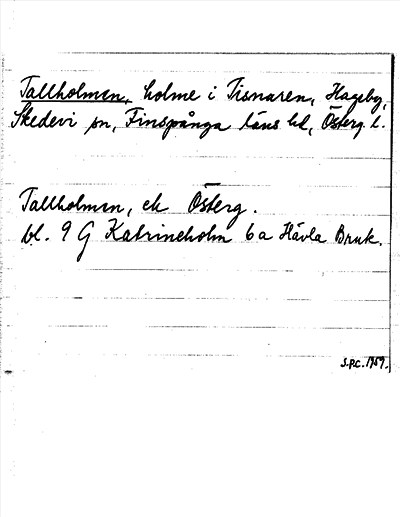 Tallholmen, holme i Tisnaren, Hageby,
Skedevi sn, Finspånga läns hd, Österg. l.
Tallholmen, ek Österg.
bl. 9 G Katrineholm 6a Hävla Bruk.
S.P.C. 1959.